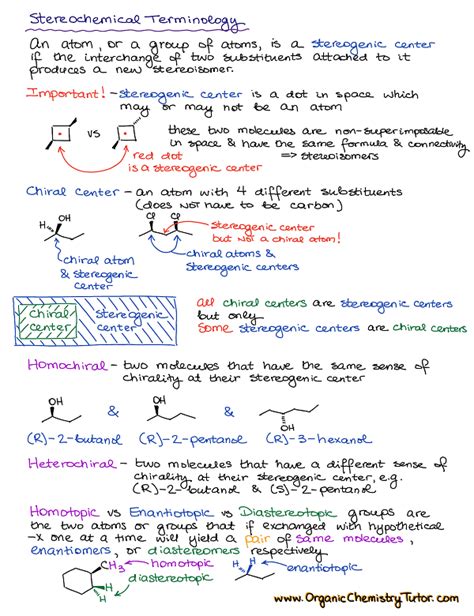 Stereochemical Terminology
An atom, or a group of atoms, is a stereogenic center
if the interchange of two substituents attached to it
produces a new stereoisomer.
Important! - stereogenic center is a dot in space which
may or may not be an atom
vs
these two molecules are non-superimposable
in space & have the same formula & connectivity
=> stereoisomers
red dot
is a stereogenic center
Chiral center - an atom with 4 different substituents
(does NOT have to be carbon)
H OH
Cl Cl
stereogenic center
but NOT a chiral atom!
chiral atom
& stereogenic
center
chiral atoms &
stereogenic centers
chiral
center
stereogenic
center
All chiral centers are stereogenic centers
but only
Some stereogenic centers are chiral centers
Homochiral - two molecules that have the same sense of
chirality at their stereogenic center
OH & OH & OH
(R)-2-butanol (R)-2-pentanol (R)-3-hexanol
Heterochiral - two molecules that have a different sense of
chirality at their stereogenic center, e.g.
(R)-2-butanol & (S)-2-pentanol
Homotopic vs Enantiotopic vs Diastereotopic groups are
the two atoms or groups that if exchanged with hypothetical
-X one at a time will yield a pair of same molecules,
enantiomers, or diastereomers respectively
CH3 homotopic
diastereotopic
H H enantiotopic
www.OrganicChemistryTutor.com